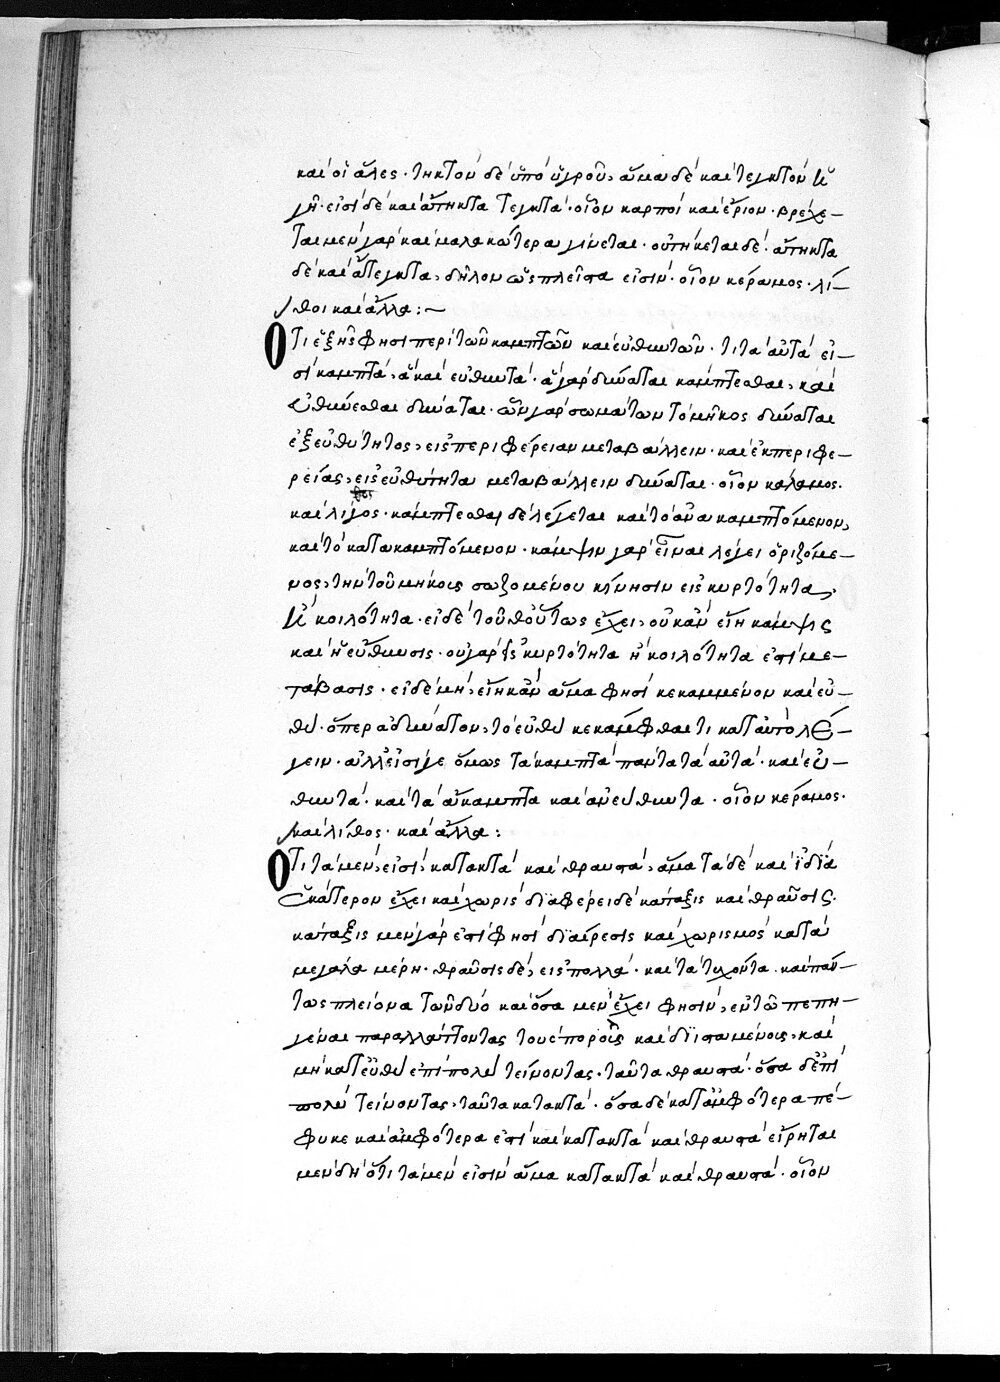 καὶ οἱ ἅλες· τηκτὸν δὲ ὑπὸ ὑγροῦ, ἅμα δὲ καὶ τεγκτὸν ἡ
γῆ· εἰσὶ δὲ καὶ ἄτηκτα τεγκτά· οἷον καρποὶ καὶ ἔριον· βρέχε-
ται μὲν γὰρ καὶ μαλακώτερα γίνεται· οὐ τήκεται δέ· ἄτηκτα
δὲ καὶ ἄτεγκτα, δῆλον ὡς πλεῖστα εἰσίν· οἷον κέραμος· λί-
θοι καὶ ἄλλα :~
Ὅτι ἑξῆς φησὶ περὶ τῶν καμπτῶν καὶ εὐθυντῶν· τί τὰ αὐτά εἰ-
σὶ καμπτὰ, ἃ καὶ εὐθυντά· ἃ γὰρ δύναται κάμπτεσθαι, καὶ
εὐθύνεσθαι δύναται· ὧν γὰρ σωμάτων τὸ μῆκος δύναται
ἐξ εὐθύτητος, εἰς περιφέρειαν μεταβάλλειν· καὶ ἐκ περιφε-
ρείας, εἰς εὐθύτητα μεταβάλλειν δύναται· οἷον κάλαμος·
καὶ λύγος· κάμπτεσθαι δὲ λέγεται καὶ τὸ ἄνω καμπτόμενον,
καὶ τὸ κάτω καμπτόμενον· κάμψιν γὰρ εἶναι λέγει ὁριζόμε-
νος, τὴν τοῦ μήκους σωζομένου κίνησιν εἰς κυρτότητα,
ἢ κοιλότητα· εἰ δὲ τοῦθ' οὕτως ἔχει, οὐκ ἂν εἴη κάμψις
καὶ ἡ εὔθυνσις· οὐ γὰρ εἰς κυρτότητα ἢ κοιλότητα ἐστὶ με-
τάβασις· εἰ δὲ μὴ, εἴη κἂν ἅμα φησὶ κεκαμμένον καὶ εὐ-
θύ· ὅπερ ἀδύνατον, τὸ εὐθὺ κεκάμφθαι τι κατ' αὐτὸ λέ-
γειν· ἀλλ' εἰσί γε ὅμως τὰ καμπτὰ πάντα τὰ αὐτὰ· καὶ εὐ-
θυντά· καὶ τὰ ἄκαμπτα καὶ ἀνεύθυντα· οἷον κέραμος·
καὶ λίθος· καὶ ἄλλα :
Ὅτι τὰ μὲν, εἰσὶ, κατακτὰ καὶ θραυστὰ, ἅμα τὰ δὲ καὶ ἰδίᾳ
ἑκάτερον ἔχει καὶ χωρίς διαφέρει δὲ κάταξις καὶ θραῦσις·
κάταξις μὲν γάρ ἐστι φησὶ διαίρεσις καὶ χωρισμὸς κατὰ
μεγάλα μέρη· θραῦσις δὲ, εἰς πολλὰ· καὶ τὰ τυχόντα· καὶ πάν-
τως πλείονα τῶν δύο καὶ ὅσα μὲν ἔχει φησὶν, ἐν τῷ πεπη-
γέναι παραλλάττοντας τοὺς πόρους καὶ διϊσταμένους, καὶ
μὴ κατ' εὐθὺ ἐπὶ πολὺ τείνοντας· ταῦτα θραυστά· ὅσα δ' ἐπὶ
πολὺ τείνοντας, ταῦτα κατακτά· ὅσα δὲ κατ' ἀμφότερα πέ-
φυκε καὶ ἀμφότερα ἐστὶ καὶ κατακτὰ καὶ θραυστὰ εἴρηται
μὲν δὴ ὅτι τὰ μέν εἰσιν ἅμα κατακτὰ καὶ θραυστὰ· οἷον